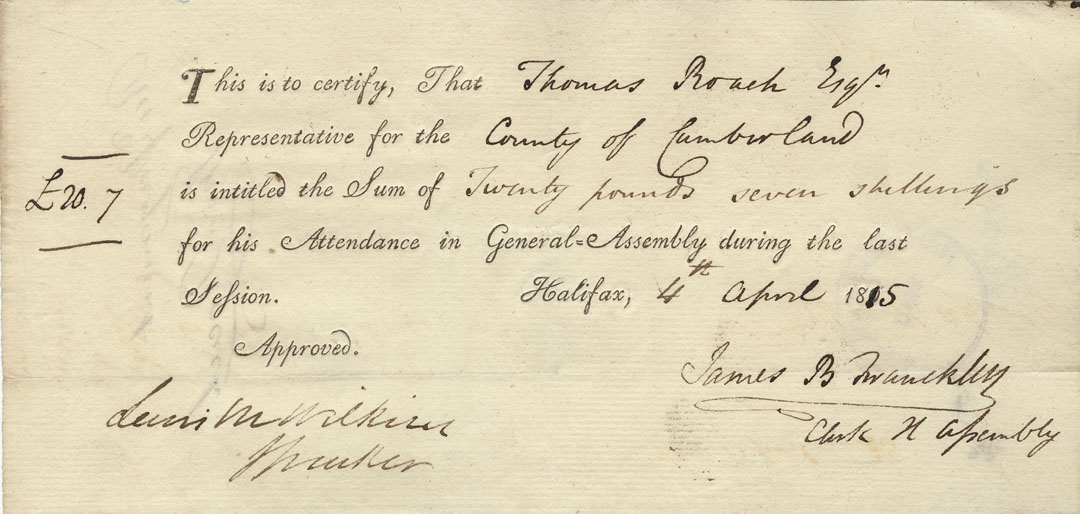 This is to certify, That Thomas Roach Esqr.
Representative for the County of Cumberland
£20.7
is intitled the Sum of Twenty pounds seven shillings
for his Attendance in General=Assembly during the last
Seſsion. Halifax, 4th April 1815
Approved.
James B Franckley
Lewis M Wilkins
Speaker
Clerk H Aſsembly